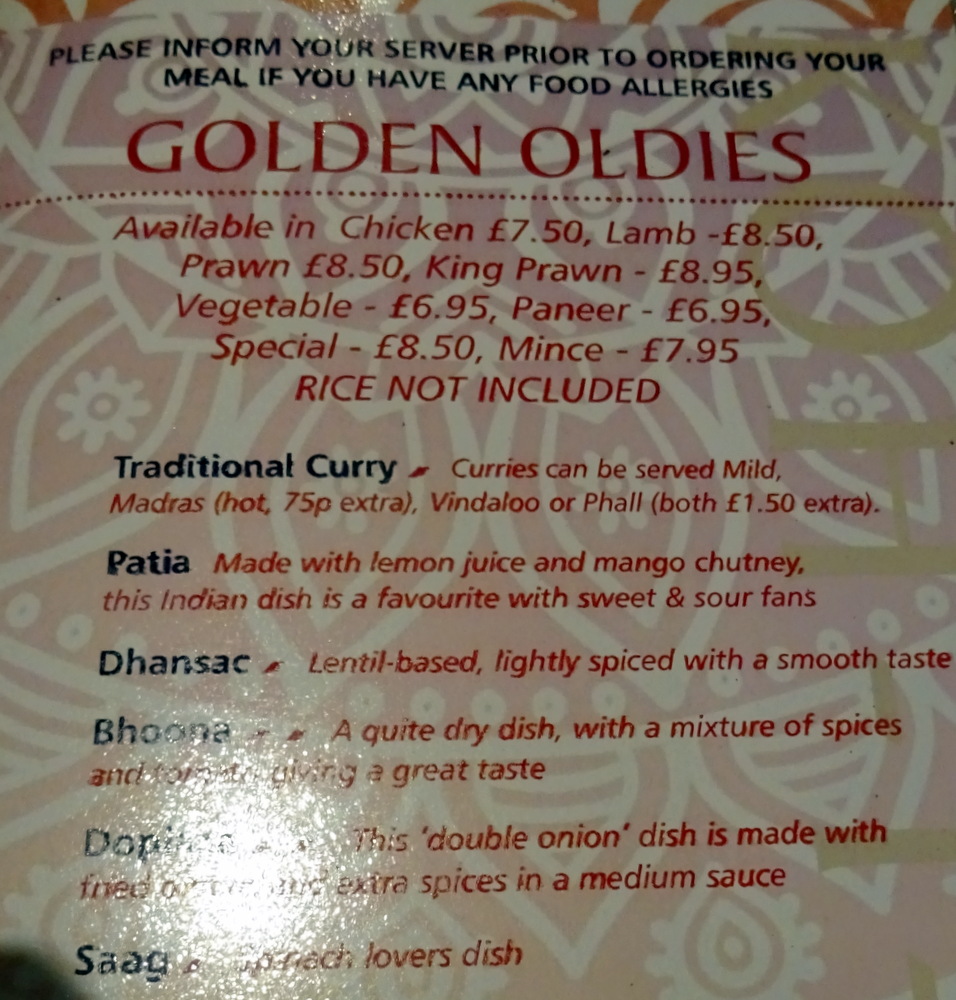 PLEASE INFORM YOUR SERVER PRIOR TO ORDERING YOUR
MEAL IF YOU HAVE ANY FOOD ALLERGIES
GOLDEN OLDIES
Available in Chicken £7.50, Lamb -£8.50,
Prawn £8.50, King Prawn - £8.95,
Vegetable - £6.95, Paneer - £6.95,
Special - £8.50, Mince - £7.95
RICE NOT INCLUDED
Traditional Curry Curries can be served Mild,
Madras (hot, 75p extra), Vindaloo or Phall (both £1.50 extra).
Patia Made with lemon juice and mango chutney,
this Indian dish is a favourite with sweet & sour fans
Dhansac Lentil-based, lightly spiced with a smooth taste
Bhoona A quite dry dish, with a mixture of spices
and giving a great taste
This 'double onion' dish is made with
fried and extra spices in a medium sauce
Saag Spinach lovers dish